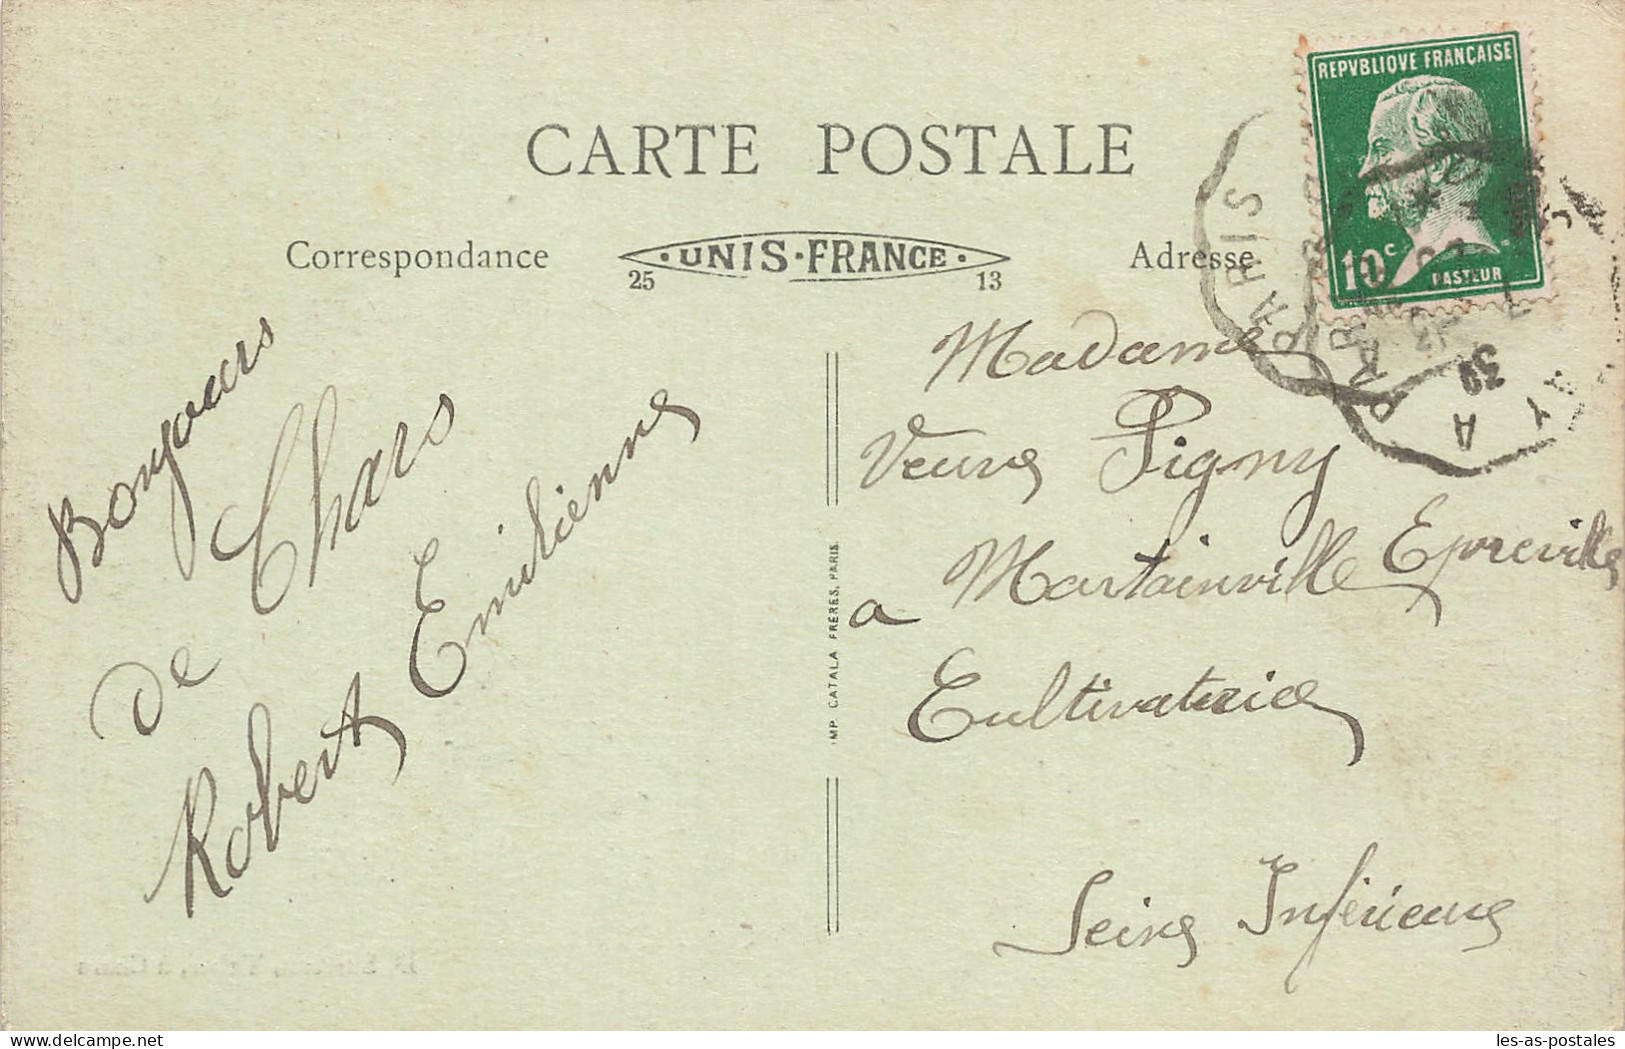 CARTE POSTALE
Correspondance
UNIS·FRANCE
25 13
Adresse
REPVBLIQVE FRANÇAISE
10c
PASTEUR
PARIS
39
Bonjours
de Chars
Robert Emilienne
Madame
Veuve Pigny
a Martainville Epreville
Cultivatrice
Seine Inférieure
IMP. CATALA FRÈRES, PARIS.
delcampe.net
les-as-postales